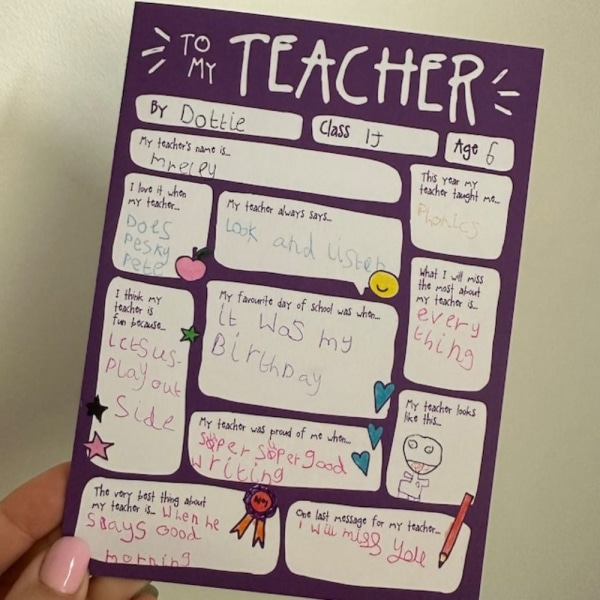 TO
MY
TEACHER
By Dottie
Class 1J
Age 6
My teacher's name is...
I love it when
my teacher...
Does
Pesky
Pete
My teacher always says...
Look and listen
This year my
teacher taught me...
Phonics
I think my
teacher is
fun because...
Letsus
Play out
Side
My favourite day of school was when...
it was my
Birthday
What I will miss
the most about
my teacher is...
every
thing
My teacher was proud of me when...
super super good
writing
My teacher looks
like this...
The very best thing about
my teacher is... When he
says Good
morning
One last message for my teacher...
I will miss you